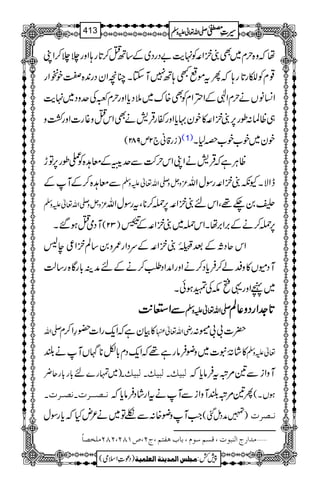 سیرتِ مصطفیٰ صلی اللہ تعالیٰ علیہ وسلم 413
تھا کہ وہ حرم میں بھی بنی خزاعہ کو نہایت بے دردی کے ساتھ قتل کرتا رہا اور چلا چلا کر اپنی
قوم کو للکارتا رہا کہ پھر یہ موقع کبھی ہاتھ نہیں آ سکتا۔ چنانچہ ان درندہ صفت خونخوار
انسانوں نے حرمِ الٰہی کے احترام کو بھی خاک میں ملا دیا اور حرمِ کعبہ کی حدود میں نہایت
ہی ظالمانہ طور پر بنی خزاعہ کا خون بہایا اور کفارِ قریش نے بھی اس قتل و غارت اور کشت و
خون میں خوب خوب حصہ لیا۔ (1) (زرقانی ج۲ ص۲۸۹)
ظاہر ہے کہ قریش نے اپنی اس حرکت سے حدیبیہ کے معاہدہ کو عملی طور پر توڑ
ڈالا۔ کیونکہ بنی خزاعہ رسول اللہ عزوجل و صلی اللہ تعالیٰ علیہ وسلم سے معاہدہ کر کے آپ کے
حلیف بن چکے تھے، اس لئے بنی خزاعہ پر حملہ کرنا، یہ رسول اللہ عزوجل و صلی اللہ تعالیٰ علیہ وسلم
پر حملہ کرنے کے برابر تھا۔ اس حملہ میں بنی خزاعہ کے تیئس (۲۳) آدمی قتل ہو گئے۔
اس حادثہ کے بعد قبیلۂ بنی خزاعہ کے سردار عمرو بن سالم خزاعی چالیس
آدمیوں کا وفد لے کر فریاد کرنے اور امداد طلب کرنے کے لئے مدینہ بارگاہ رسالت
میں پہنچے اور یہی فتح مکہ کی تمہید ہوئی۔
تاجدارِ دو عالم صلی اللہ تعالیٰ علیہ وسلم سے استعانت
حضرت بی بی میمونہ رضی اللہ تعالیٰ عنہا کا بیان ہے کہ ایک رات حضور اکرم صلی اللہ
تعالیٰ علیہ وسلم کاشانۂ نبوت میں وضو فرما رہے تھے کہ ایک دم بالکل ناگہاں آپ نے بلند
آواز سے تین مرتبہ یہ فرمایا کہ لبیک۔ لبیک۔ لبیک۔ (میں تمہارے لئے بار بار حاضر
ہوں۔) پھر تین مرتبہ بلند آواز سے آپ نے یہ ارشاد فرمایا کہ نصرت۔ نصرت۔
نصرت (تمہیں مدد مل گئی) جب آپ وضو خانہ سے نکلے تو میں نے عرض کیا کہ یا رسول
......مدارج النبوت ، قسم سوم ، باب ھفتم ،ج۲،ص۲۸۲،۲۸۱ملخصاً
پیش کش: مجلس المدینۃ العلمیۃ (دعوتِ اسلامی)